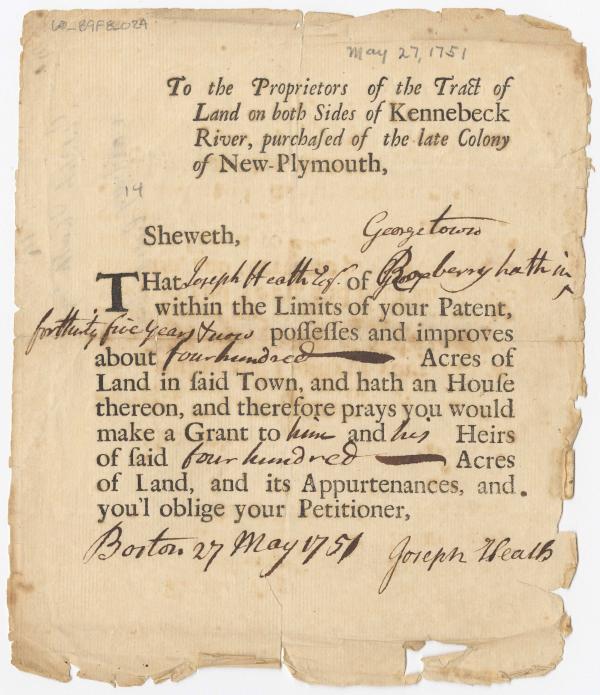 May 27, 1751
To the Proprietors of the Tract of
Land on both Sides of Kennebeck
River, purchaſed of the late Colony
of New-Plymouth,
14
Georgetown
Sheweth,
THat Joseph Heath Esqr. of Roxberry hath in
within the Limits of your Patent,
for thirty five Years & now poſſeſſes and improves
about four hundred Acres of
Land in ſaid Town, and hath an Houſe
thereon, and therefore prays you would
make a Grant to him and his Heirs
of ſaid four hundred Acres
of Land, and its Appurtenances, and
you'l oblige your Petitioner,
Boston 27 May 1751 Joseph Heath